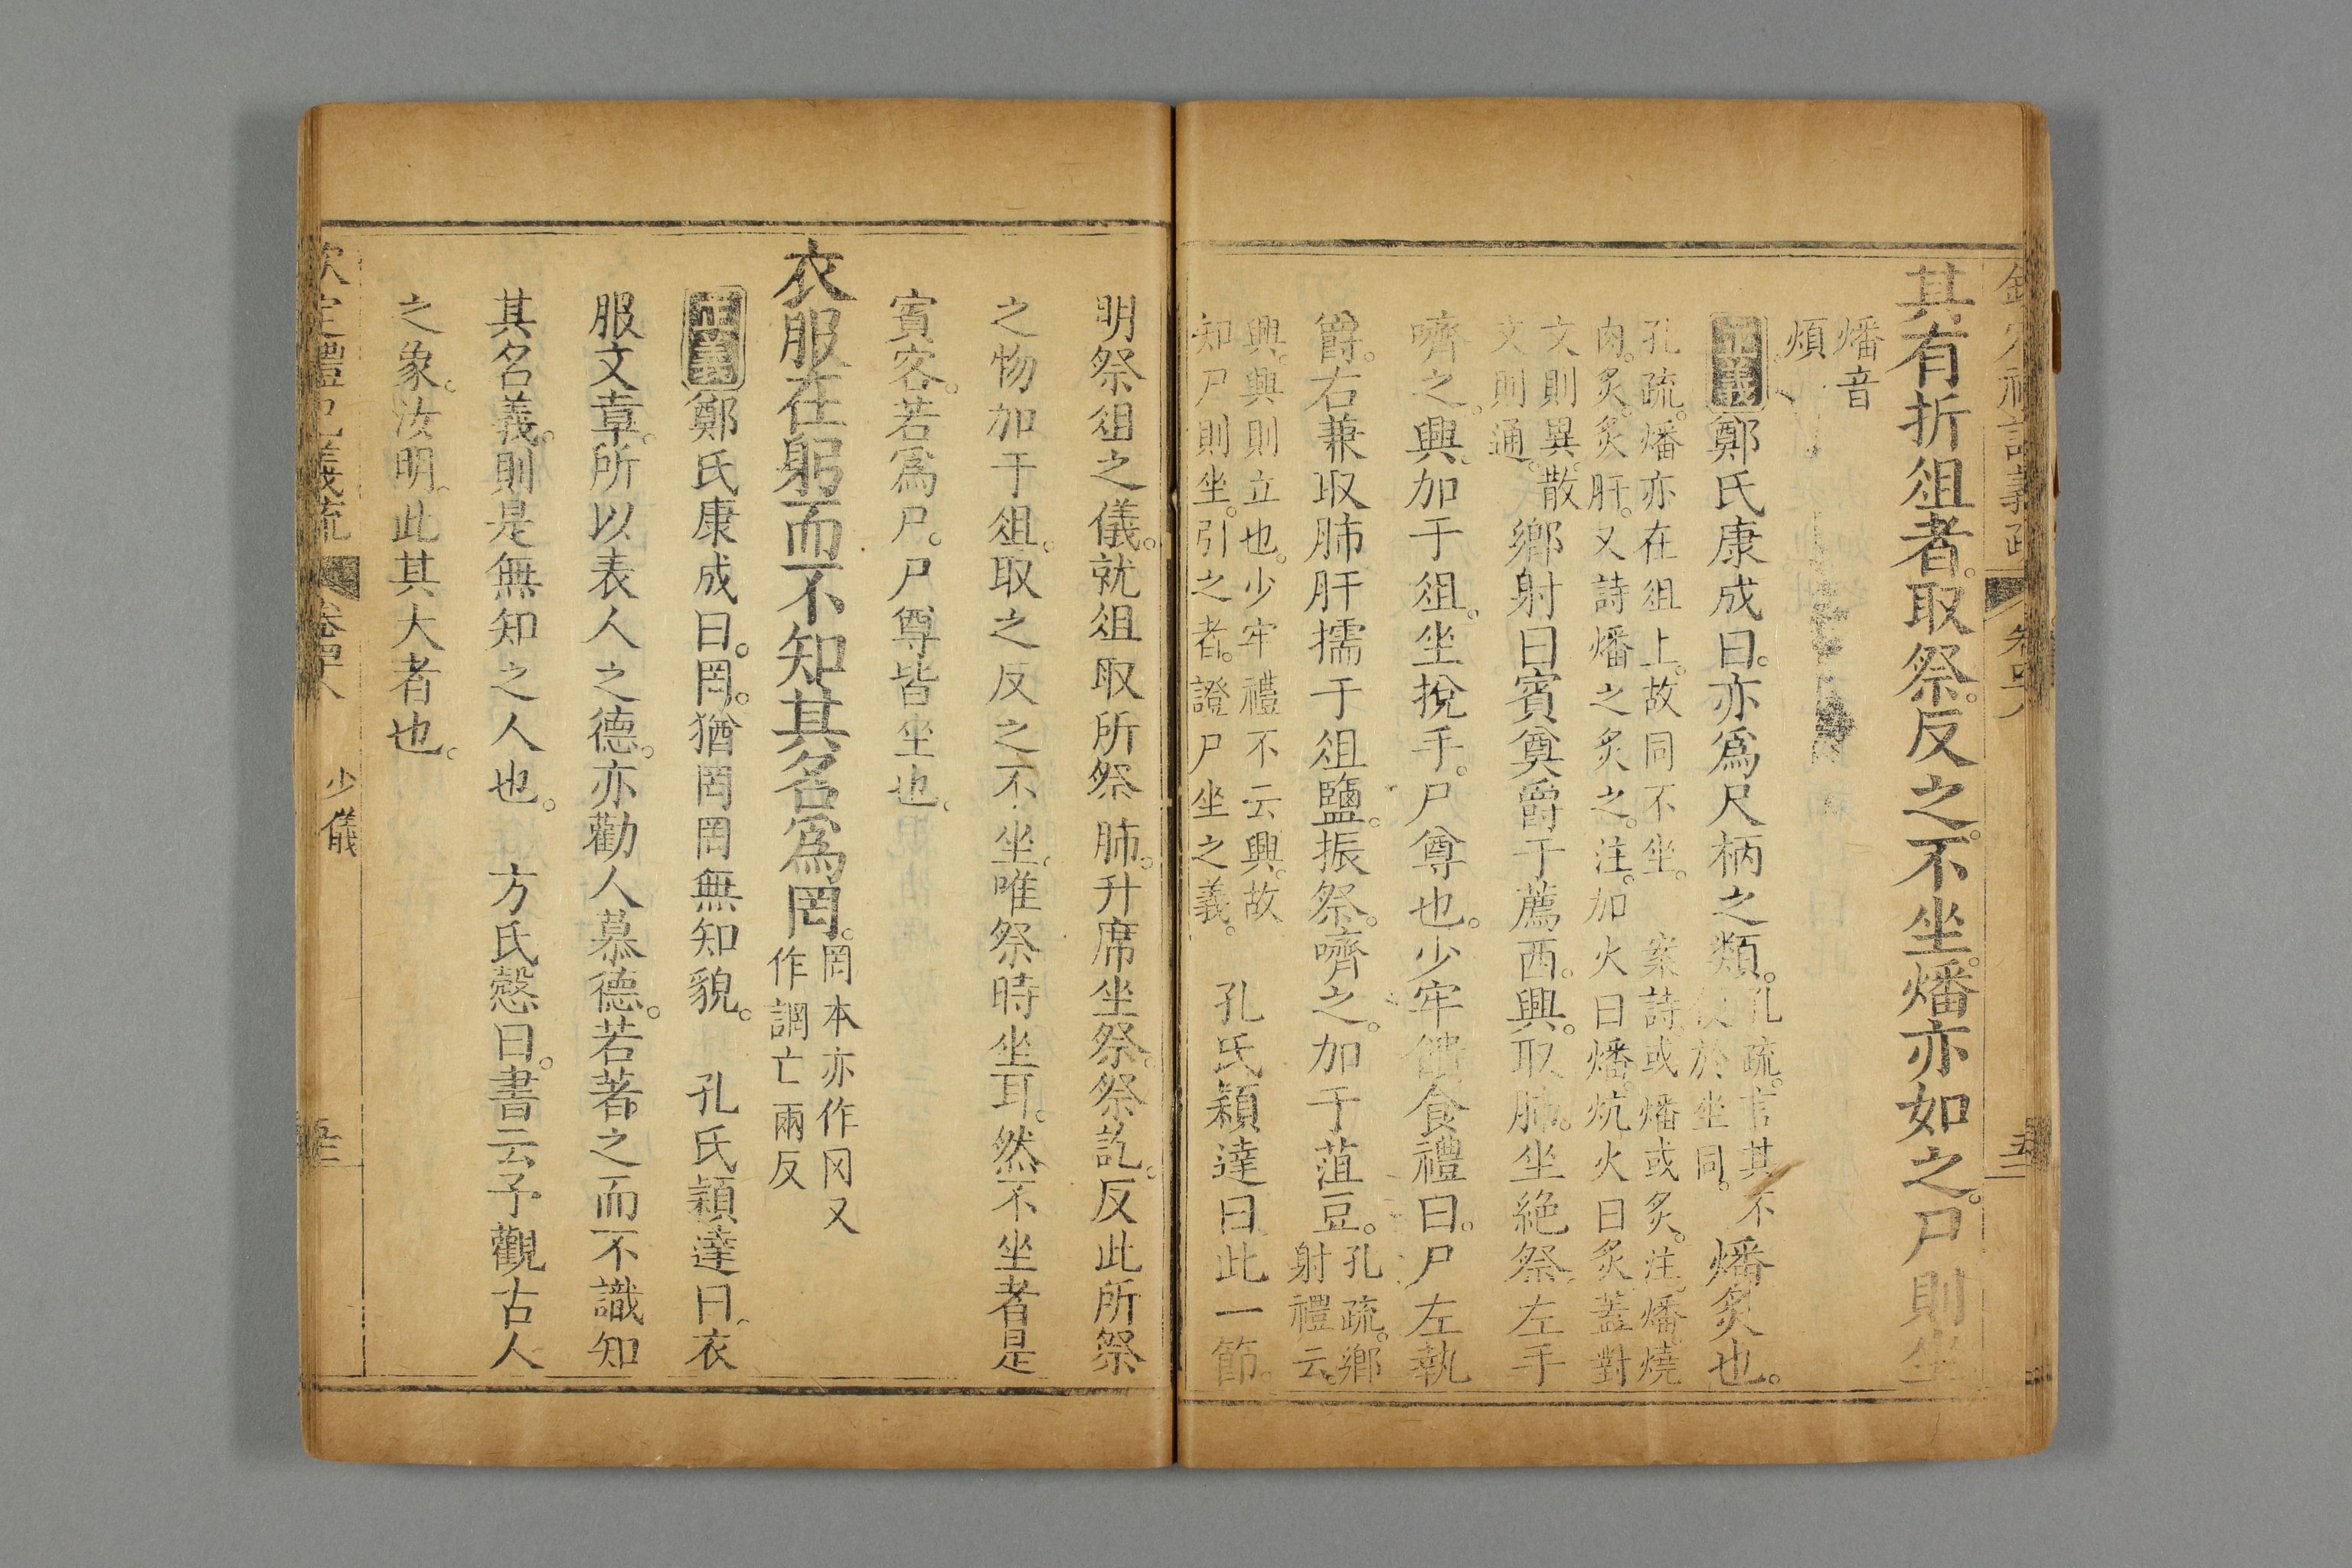 其有折俎者。取祭。反之。不坐。燔亦如之。尸則坐
燔音
煩
正義鄭氏康成曰。亦爲尺柄之類。孔疏。言其不
於坐同。燔炙也。
孔疏。燔亦在俎上。故同不坐。 案詩或燔或炙。注。燔燒
肉。炙。炙肝。又詩燔之炙之。注。加火曰燔。炕火曰炙。蓋對
文則異。散
文則通。鄉射曰賓奠爵于薦西。興。取肺。坐絶祭。左手
嚌之。興。加于俎。坐挩手。尸尊也。少牢饋食禮曰。尸左執
爵。右兼取肺肝擩于俎鹽。振祭。嚌之。加于菹豆。孔疏。鄉
射禮云。
興。興則立也。少牢禮不云興。故
知尸則坐。引之者。證尸坐之義。 孔氏穎達曰此一節。
明祭俎之儀。就俎取所祭肺。升席坐祭。祭訖。反此所祭
之物加于俎。取之反之不坐。唯祭時坐耳。然不坐者是
賓客。若爲尸。尸尊皆坐也。
衣服在躬而不知其名爲罔。罔本亦作冈又
作誷亡兩反
正義鄭氏康成曰。罔。猶罔罔無知貌。 孔氏穎達曰衣
服文章。所以表人之德。亦勸人慕德。若著之而不識知
其名義。則是無知之人也。 方氏慤曰。書云予觀古人
之象。汝明。此其大者也。
欽定禮記義疏 卷四十八 少儀